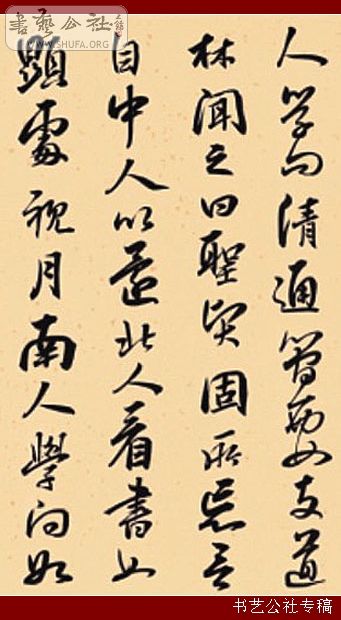 書藝公社
WWW.SHUFA.ORG
人學問清通簡要支道
林聞之曰聖賢固所忘言
自中人以還北人看書如
顯處視月南人學問如
书艺公社专稿